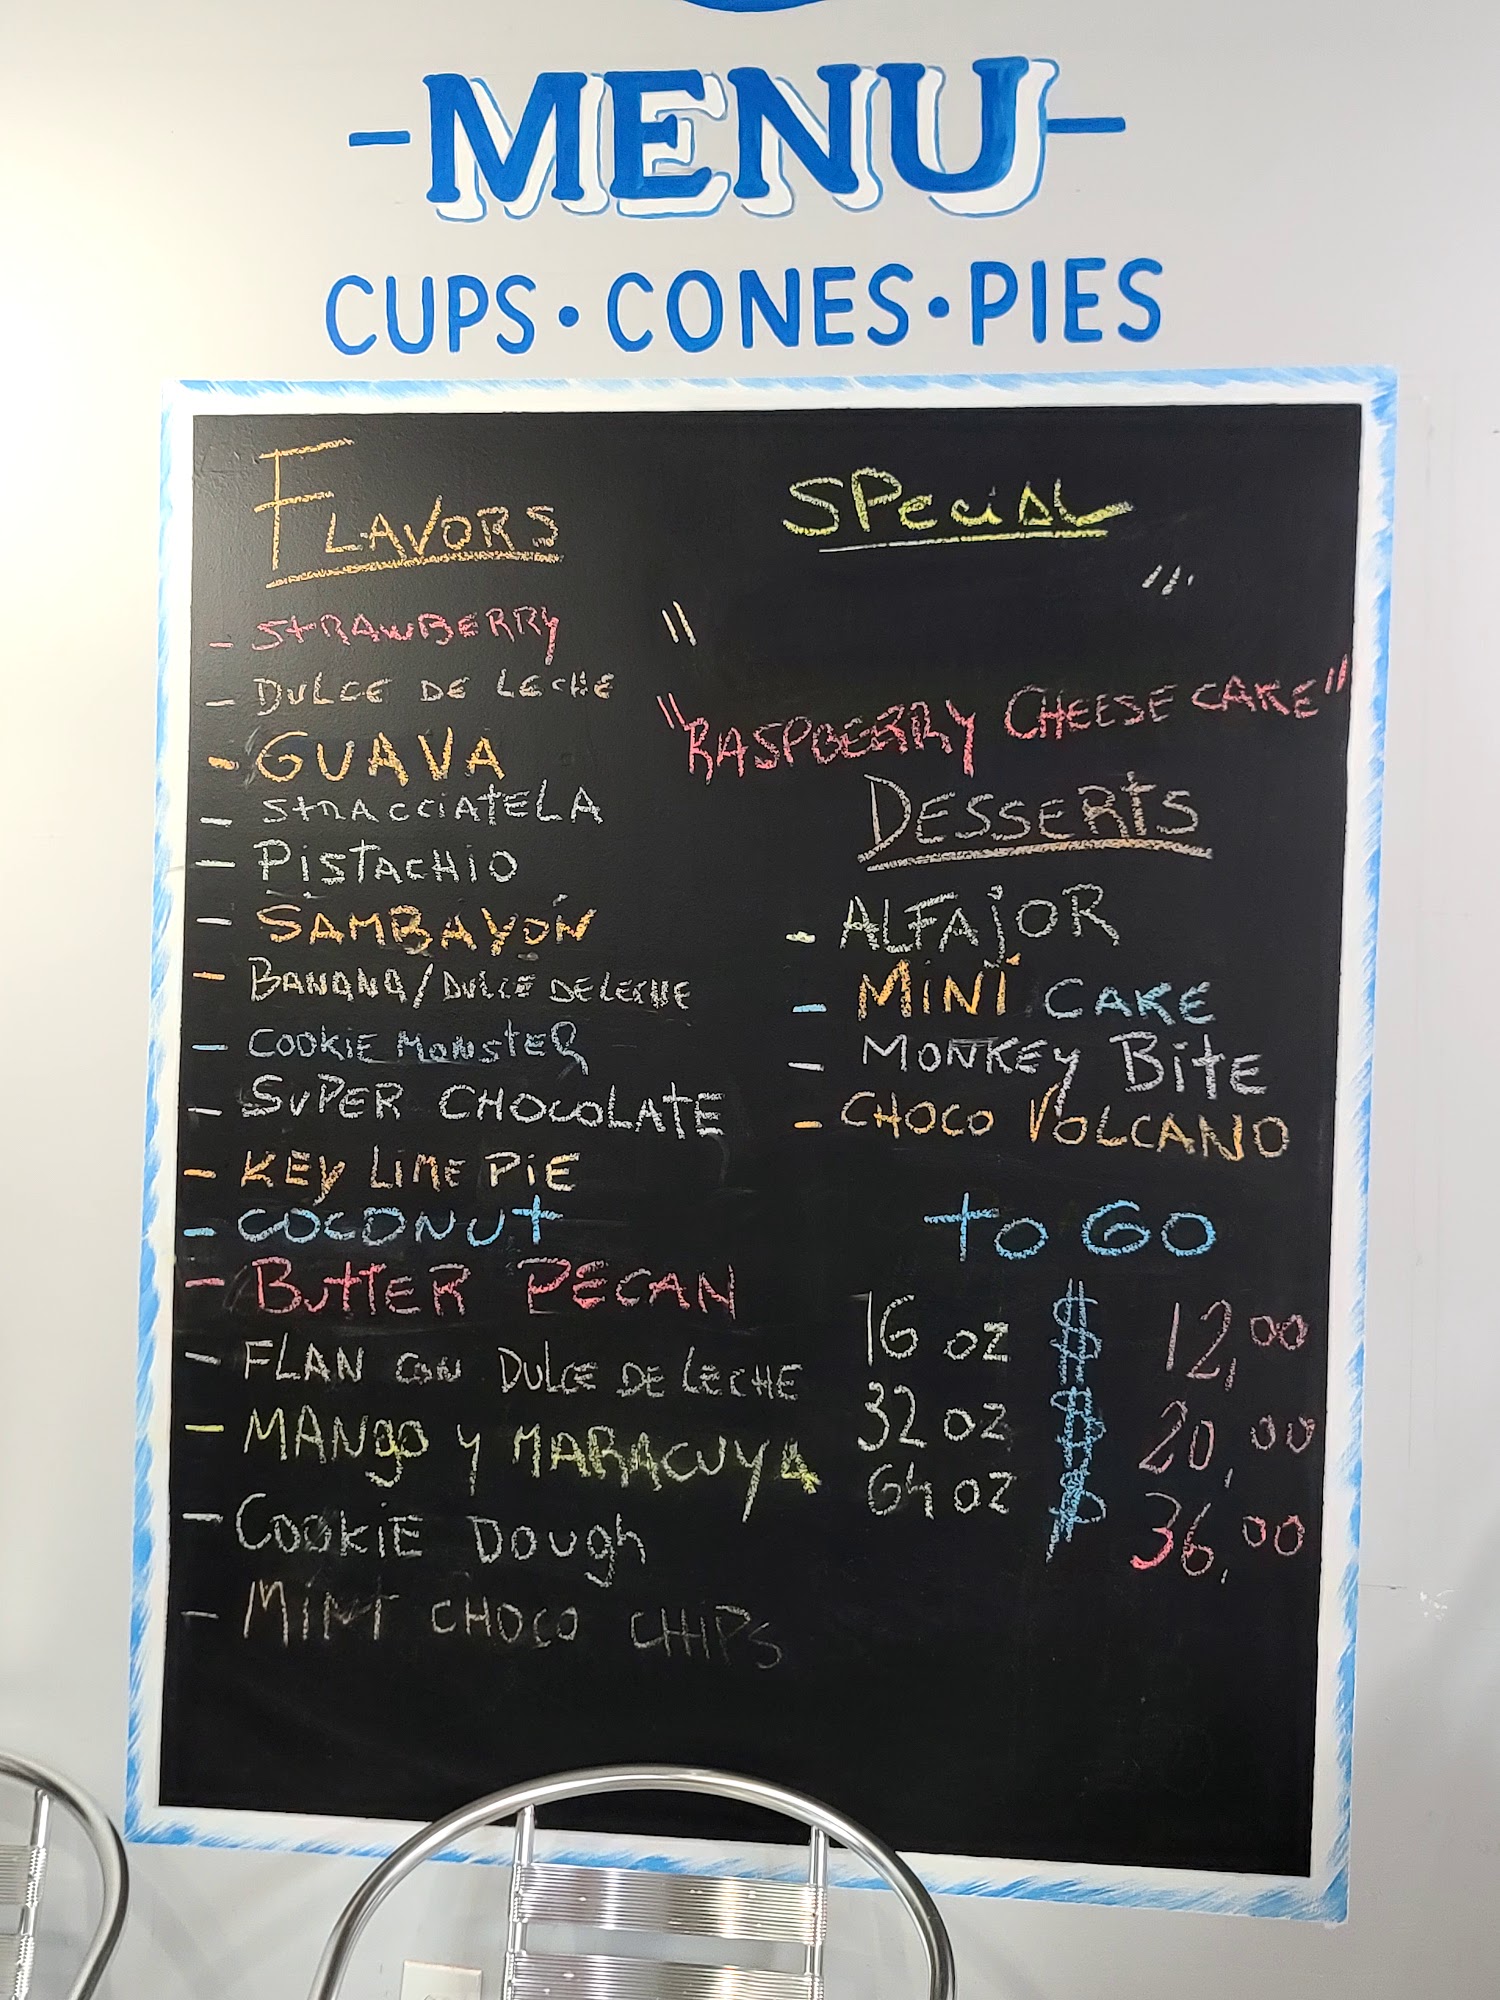 -MENU-
CUPS • CONES • PIES
FLAVORS
- STRAWBERRY
- DULCE DE LECHE
- GUAVA
- STRACCIATELA
- PISTACHIO
- SAMBAYÓN
- BANANA/DULCE DE LECHE
- COOKIE MONSTER
- SUPER CHOCOLATE
- KEY LIME PIE
- COCONUT
- BUTTER PECAN
- FLAN CON DULCE DE LECHE
- MANGO Y MARACUYA
- COOKIE DOUGH
- MINT CHOCO CHIPS
SPECIAL
" "
"RASPBERRY CHEESE CAKE"
DESSERTS
- ALFAJOR
- MINI CAKE
- MONKEY BITE
- CHOCO VOLCANO
TO GO
16 OZ $ 12,00
32 OZ $ 20,00
64 OZ $ 36,00